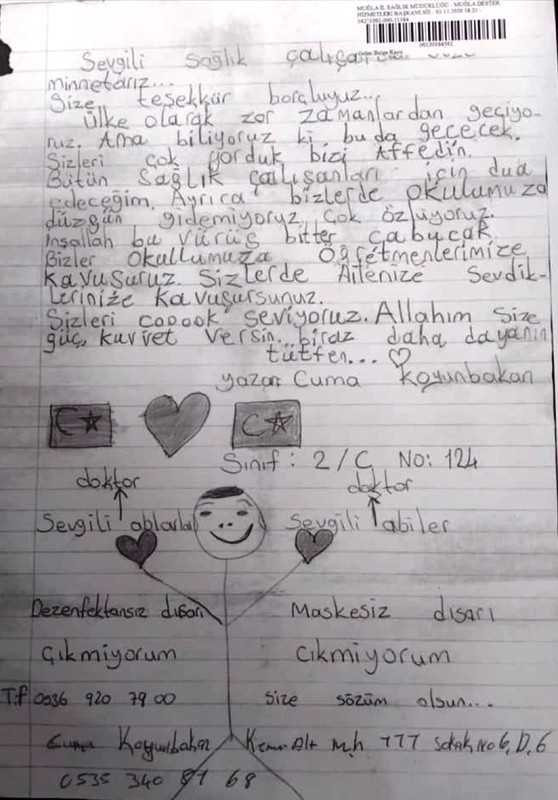 MUĞLA İL SAĞLIK MÜDÜRLÜĞÜ - MUĞLA DESTEK
HİZMETLERİ BAŞKANLIĞI
00130184592
Gelen Belge Kayıt
Sevgili Sağlık
minnetarız...
Size teşekkür borçluyuz...
Ülke olarak zor zamanlardan geçiyo-
ruz. Ama biliyoruz ki buda geçecek.
Sizleri çok yorduk bizi Affedin.
Bütün Sağlık çalışanları için dua
edeceğim. Ayrıca bizlerde okulumuza
düzgün gidemiyoruz çok özlüyoruz.
İnşallah bu vürüs bitter çabucak
Bizler okullumuza Öğretmenlerimize
kavuşuruz. Sizlerde Ailenize Sevdik-
lerinize kavuşursunuz.
Sizleri çooook seviyoruz. Allahım Size
güç, kuvvet versin... biraz daha dayanın
tütfen... ♡
yazan Cuma Koyunbakan
Sınıf: 2/C No: 124
doktor doktor
Sevgili ablarla Sevgili abiler
Dezenfektansız dışarı Maskesiz dısarı
Çıkmiyorum Cıkmiyorum
T.f 0536 920 79 00 size sözüm olsun...
Cuma Koyunbakan Kemer Alt Mh 777 Sokak No 6, D, 6
0535 340 81 68